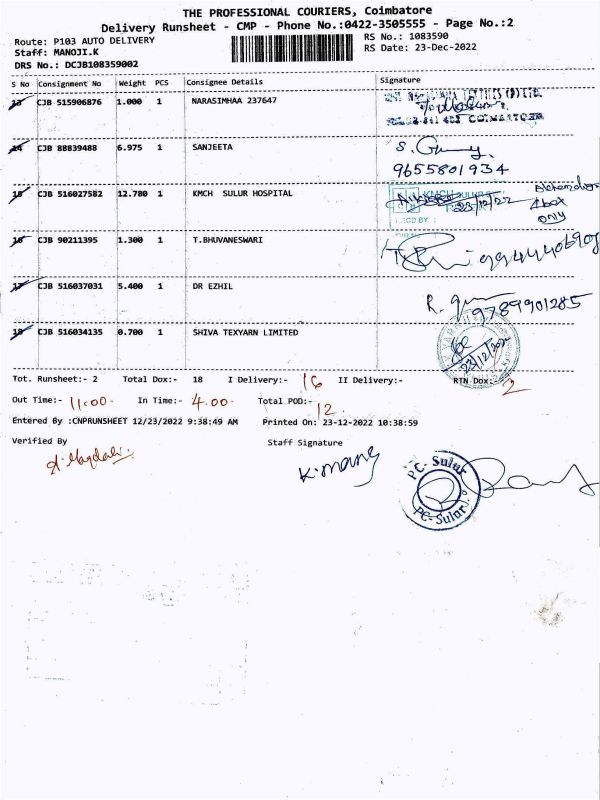 THE PROFESSIONAL COURIERS, Coimbatore
Delivery Runsheet - CMP - Phone No.:0422-3505555 - Page No.:2
Route: P103 AUTO DELIVERY
Staff: MANOJI.K
DRS No.: DCJB108359002
RS No.: 1083590
RS Date: 23-Dec-2022
S No Consignment No Weight PCS Consignee Details Signature
13 CJB 515906876 1.000 1 NARASIMHAA 237647
14 CJB 88839488 6.975 1 SANJEETA
9655801934
15 CJB 516027582 12.780 1 KMCH SULUR HOSPITAL
KMCH SULUR
23/12/22
1 box
only
16 CJB 90211395 1.300 1 T.BHUVANESWARI
17 CJB 516037031 5.400 1 DR EZHIL
9789901285
18 CJB 516034135 0.700 1 SHIVA TEXYARN LIMITED
Tot. Runsheet:- 2 Total Dox:- 18 I Delivery:- 16 II Delivery:- RTN Dox:- 2
Out Time:- 11:00 In Time:- 4.00 Total POD:- 12
Entered By :CNPRUNSHEET 12/23/2022 9:38:49 AM Printed On: 23-12-2022 10:38:59
Verified By Staff Signature
K. manoj
PC- Sulur
PC- Sulur